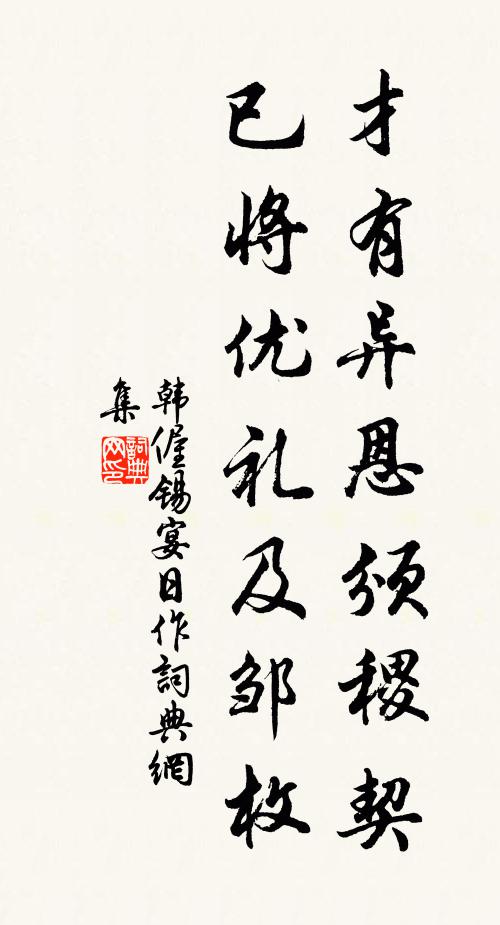 才有异恩颁稷契
已将优礼及邹枚
韩偓锡宴日作詞典網
集
詞典
网印